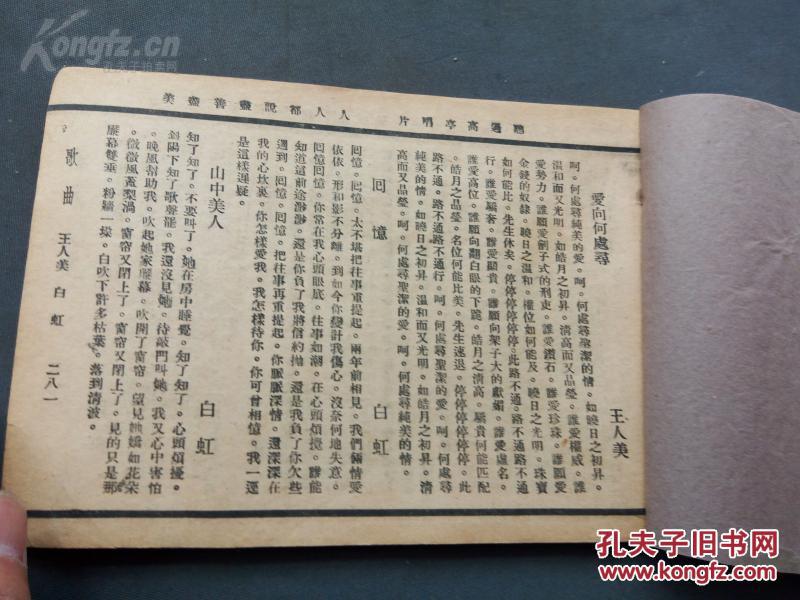 Kongfz.cn
孔夫子拍卖网
聽過高亭唱片
人人都說盡善盡美
愛向何處尋
王人美
呵。何處尋純美的愛。呵。何處尋聖潔的情。如曉日之初昇。
溫和而又光明。如皓月之初昇。清高而又晶瑩。誰愛權威。誰
愛勢力。誰願愛劊子式的刑吏。誰愛鑽石。誰愛珍珠。誰願愛
金錢的奴隸。曉日之溫和。權位如何能及。曉日之光明。珠寶
如何能比。先生休矣。停停停停停停。此路不通。路不通路不通
行。誰愛驕奢。誰愛顯貴。誰願向架子大的獻媚。誰愛虛名。
誰愛高位。誰願向翻白眼的下跪。皓月之清高。驕貴何能匹配
。皓月之晶瑩。名位何能比美。先生速退。停停停停停停。此
路不通。路不通路不通行。呵。何處尋聖潔的愛。呵。何處尋
純美的情。如曉日之初昇。溫和而又光明。如皓月之初昇。清
高而又晶瑩。呵。何處尋聖潔的愛。呵。何處尋純美的情。
回憶
白虹
回憶。回憶。太不堪把往事重提起。兩年前相見。我們倆情愛
依依。形和影不分離。到如今你變計我傷心。沒奈何地失意。
回憶回憶。你常在我心頭眼底。往事如潮。在心頭煩擾。誰能
知道這前途渺渺。還是你負了我將信約拋。還是我負了你欠些
週到。回憶。回憶。把往事再重提起。你脈脈深情。還深深在
我的心坎裏。你怎樣愛我。我怎樣待你。你可曾相憶。我一逕
是這樣遲疑。
山中美人
白虹
知了知了。不要叫了。她在房中睡覺。知了知了。心頭煩擾。
斜陽下知了歌聲龍。我還沒見她。待敲門叫她。我又心中害怕
。晚風幫助我。吹起她家簾幕。吹開了窗帘。望見她嬌如花朵
。微微風蕩梨渦。窗帘又閉上了。窗帘又閉上了。見的只是那
簾幕雙垂。粉牆一垛。白吹下許多枯葉。落到清波。
歌曲 王人美 白虹 二八一
孔夫子旧书网
www.kongfz.com